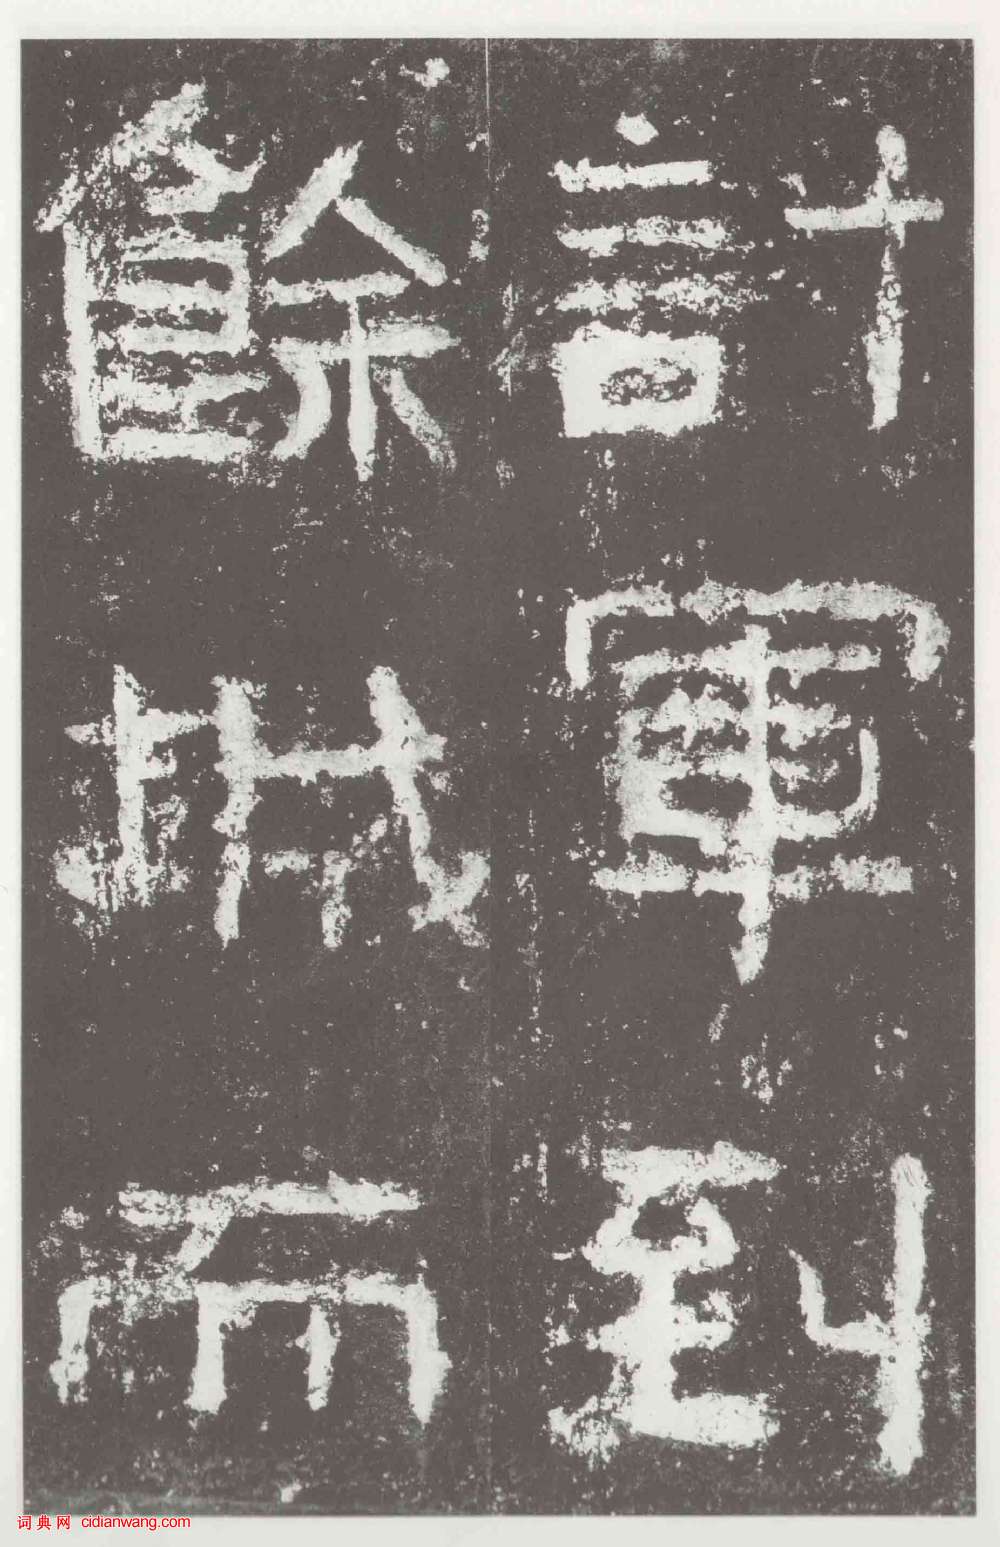 討軍到
餘城而
词典网 cidianwang.com